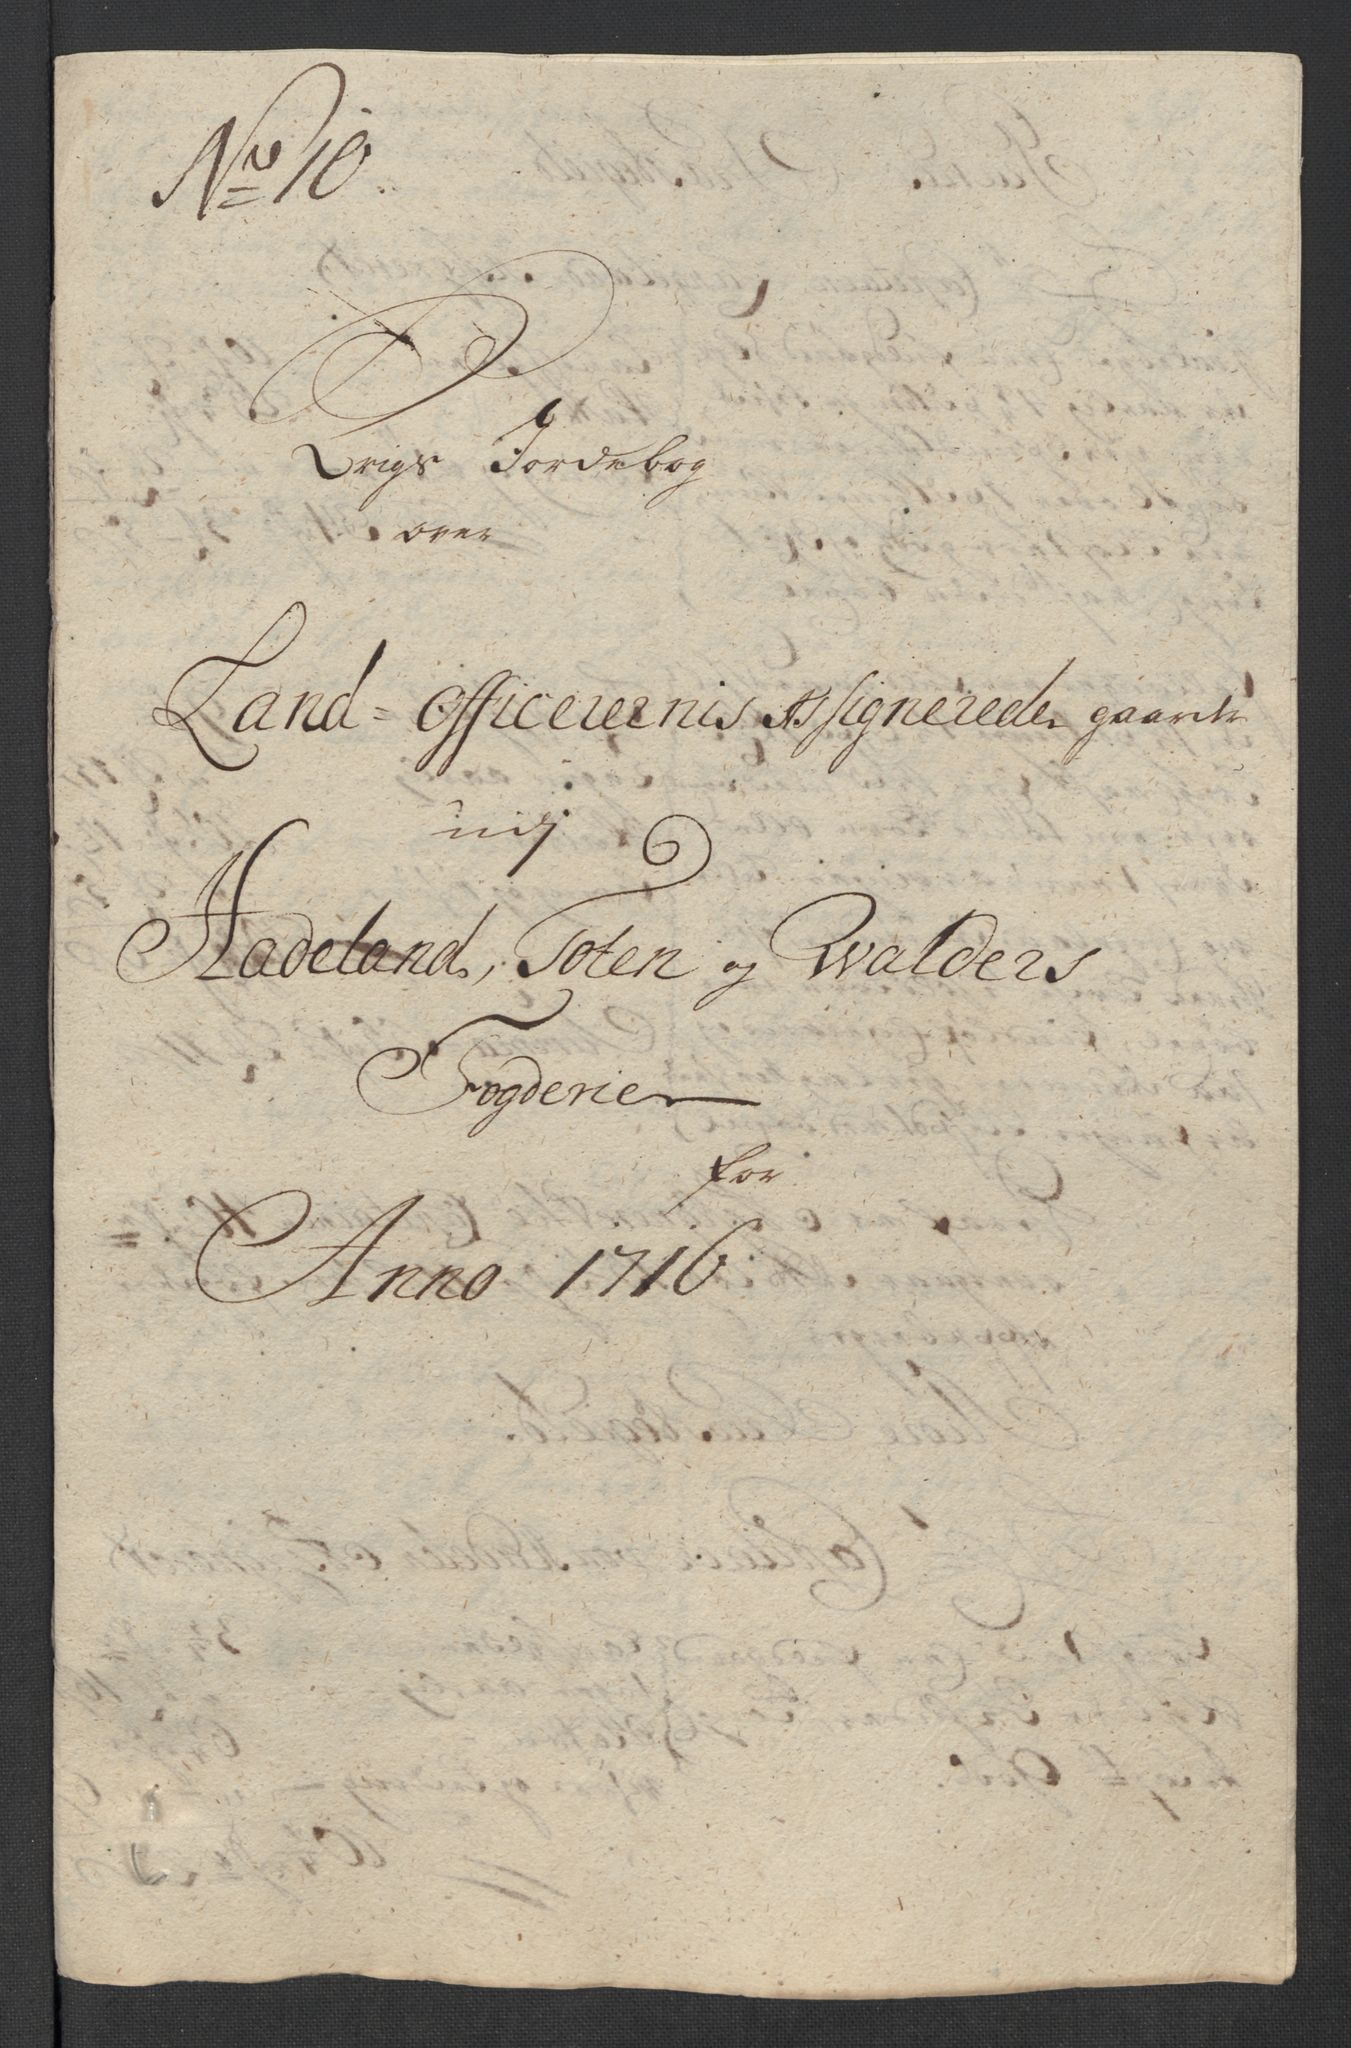 No 10.
Krigs Jordebog
over
Land-officerernis Assignerede gaarde
udj
Hadeland, Toten og Walders
Fogderie
for
Anno 1716